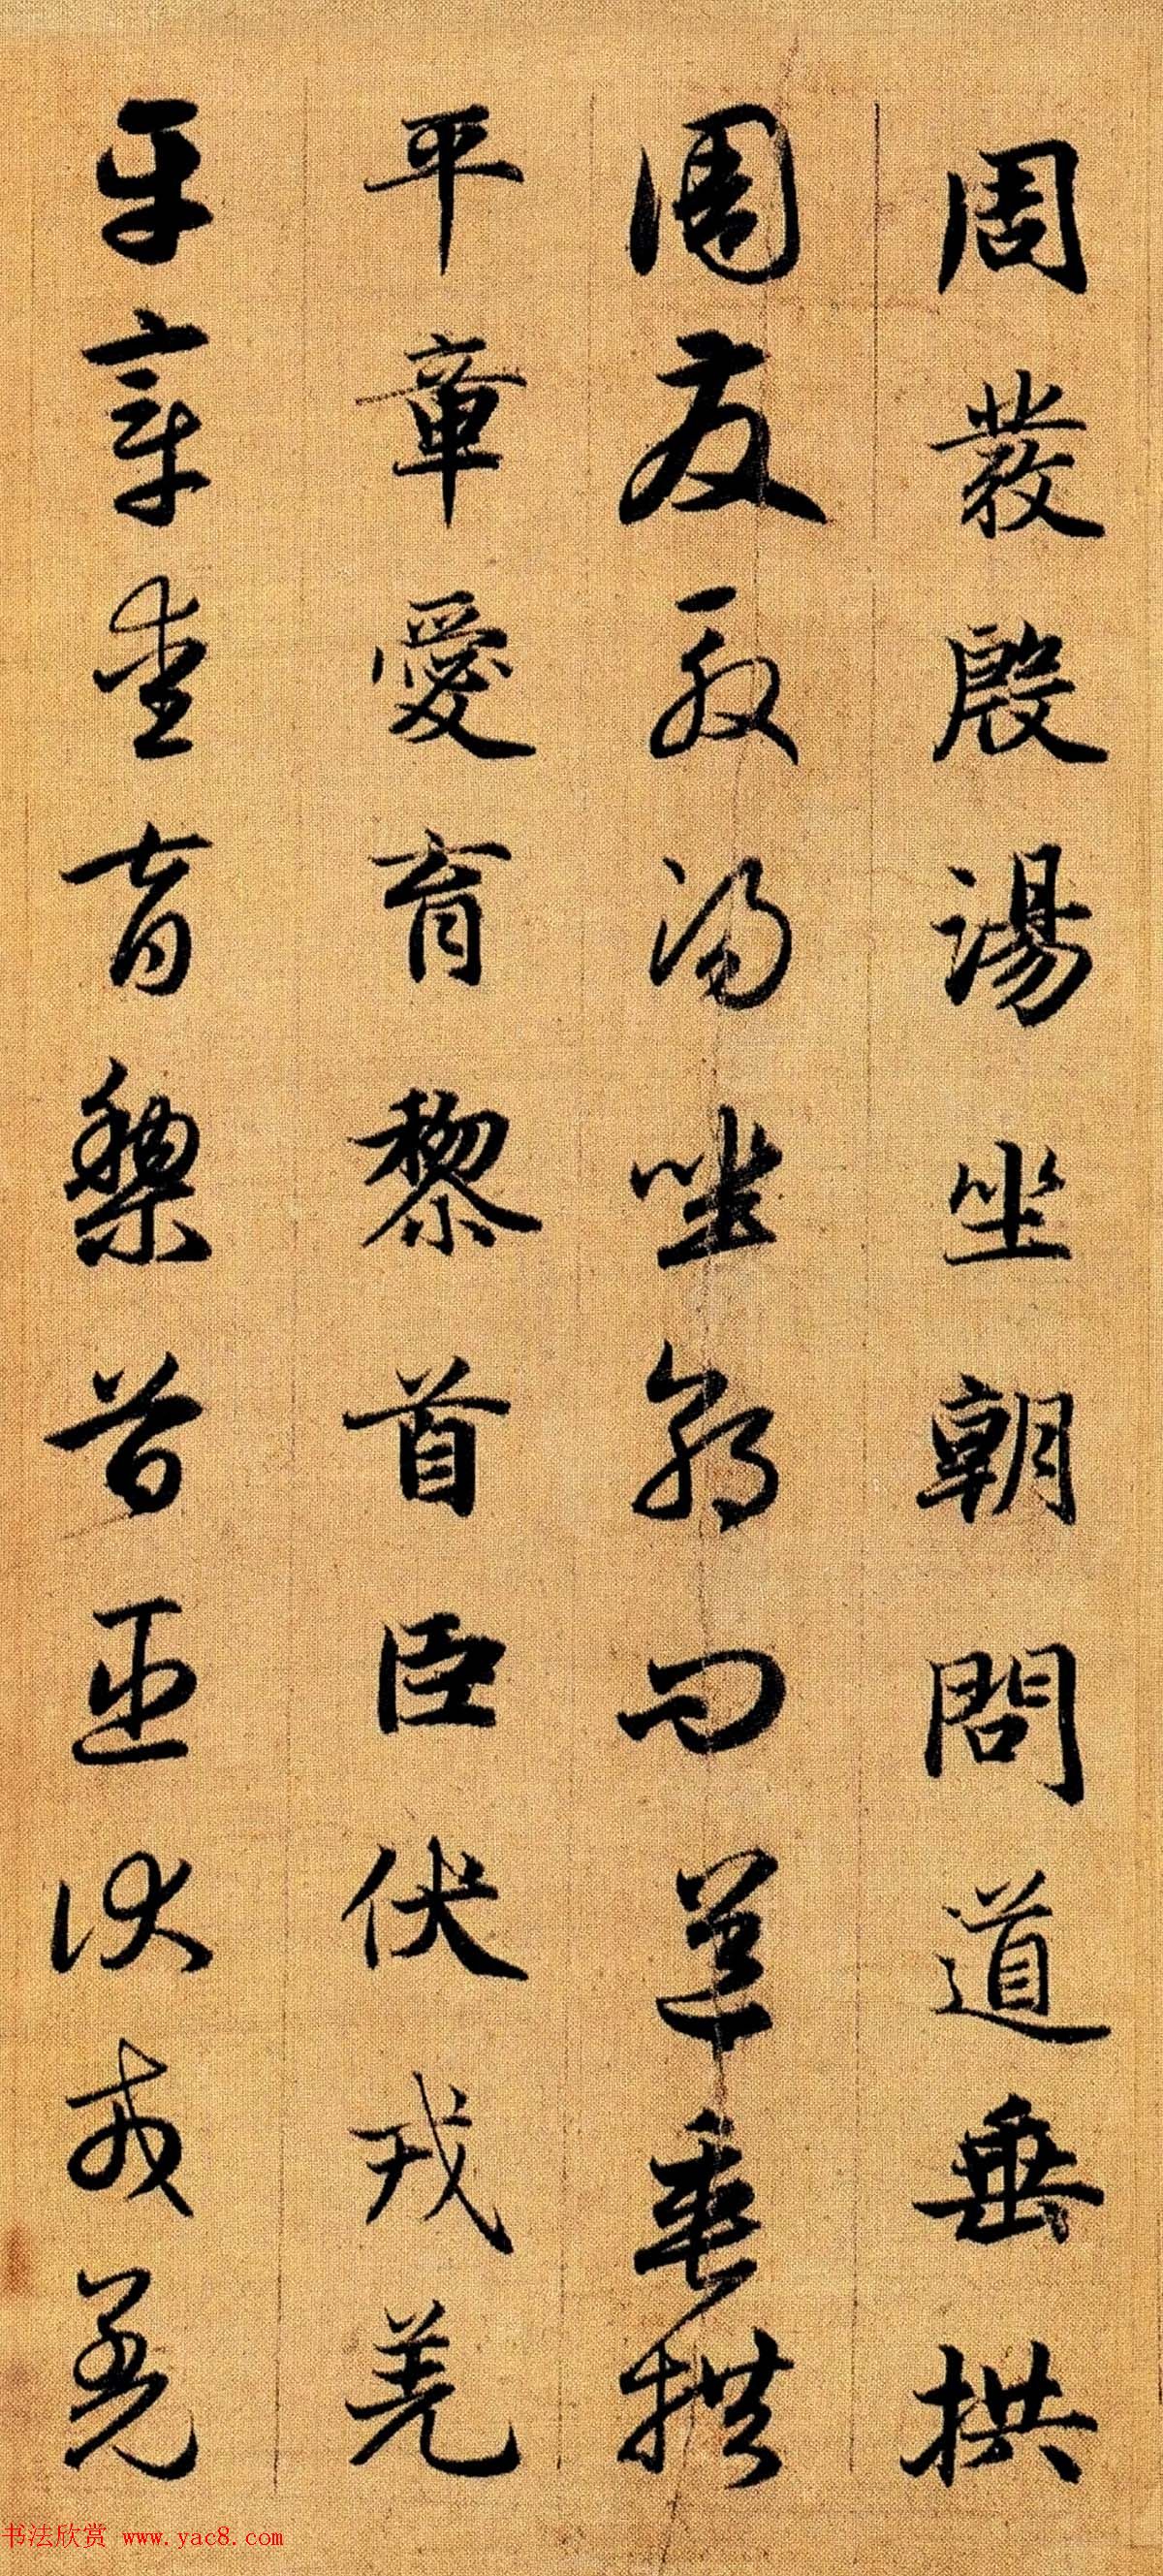 周發殷湯坐朝問道垂拱
周發殷湯坐朝問道垂拱
平章愛育黎首臣伏戎羌
平章愛育黎首臣伏戎羌
书法欣赏 www.yac8.com